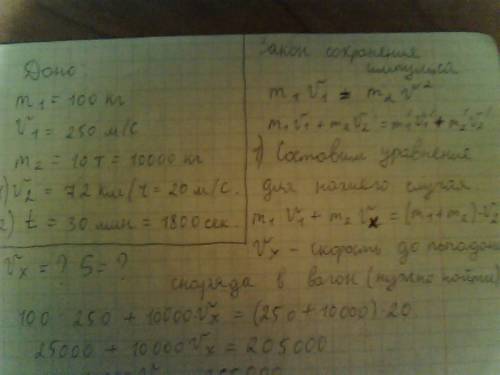 Дано:
m₁ = 100 кг
V₁ = 250 м/с
m₂ = 10 т = 10000 кг
1) V₂ = 72 км/ч = 20 м/с.
2) t = 30 мин = 1800 сек.
Vₓ = ? S = ?
Закон сохранения
импульса
m₁ V₁ = m₂ V²
m₁V₁ + m₂V₂ = m₁'V₁' + m₂'V₂'
1) Составим уравнение
для нашего случая
m₁ V₁ + m₂ Vₓ = (m₁ + m₂) · V₂
Vₓ – скорость до попадан
снаряда в вагон (нужно найти)
100 · 250 + 10000 Vₓ = (250 + 10000) · 20
25000 + 10000 Vₓ = 205000